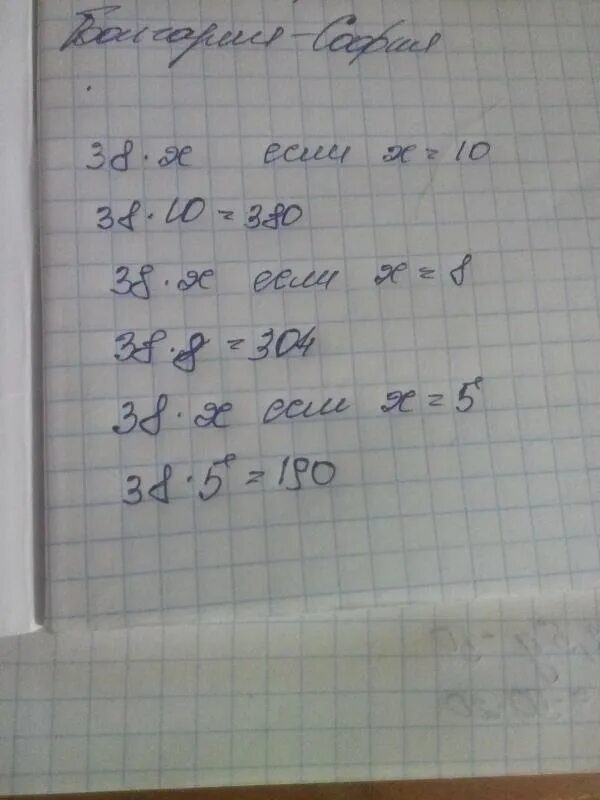 Болгария - София
38 · x если x = 10
38 · 10 = 380
38 · x если x = 8
38 · 8 = 304
38 · x если x = 5
38 · 5 = 190